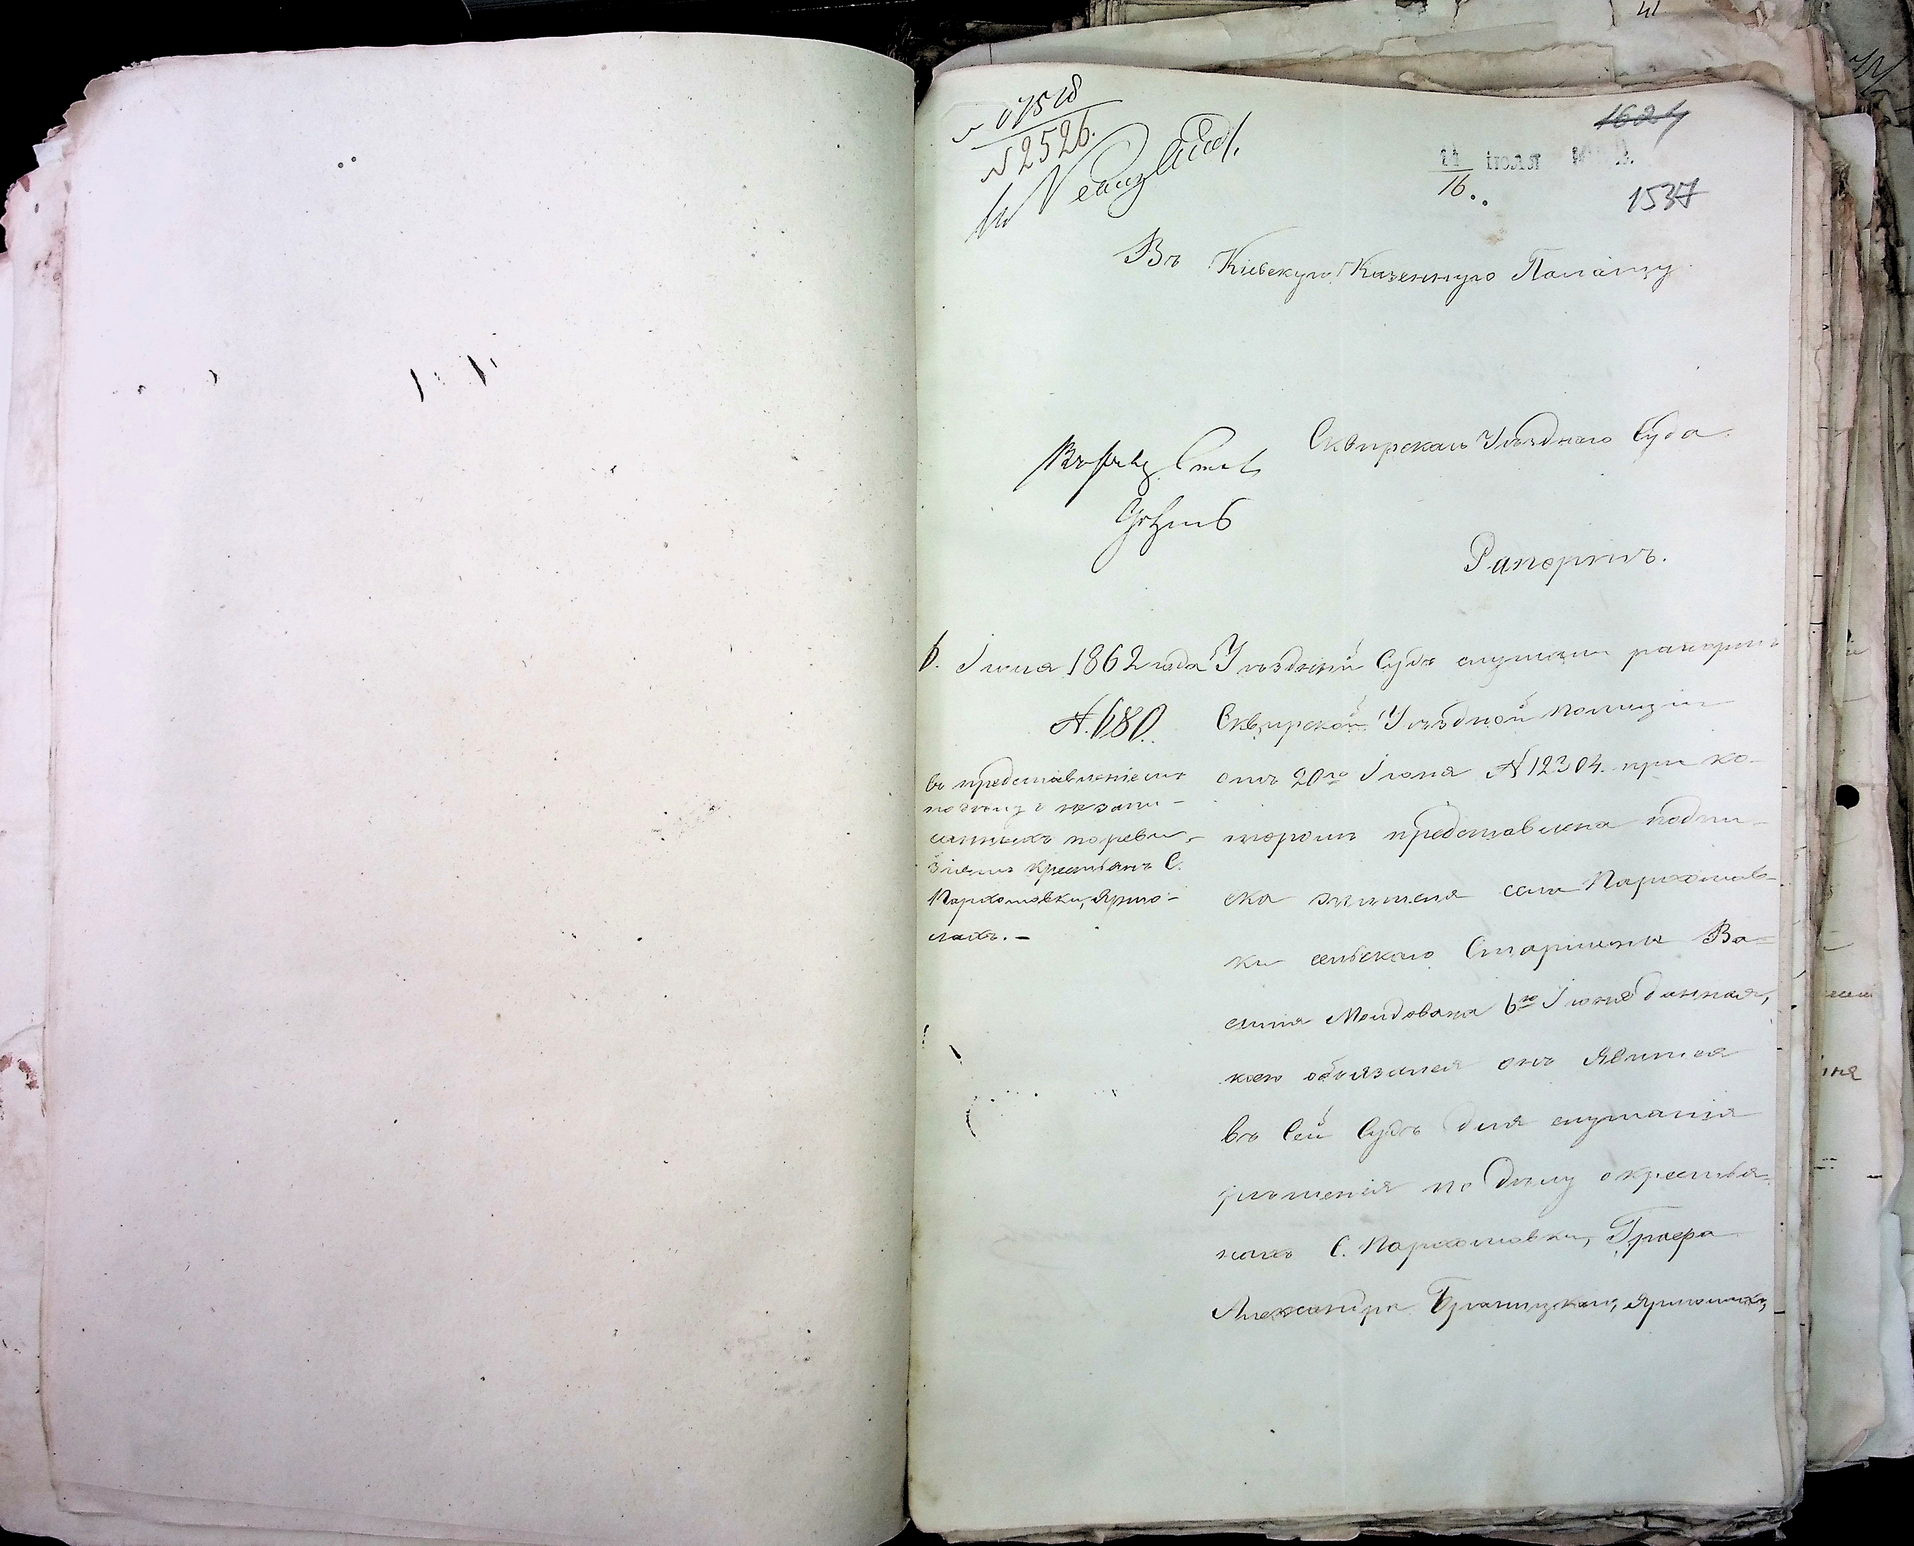 № 2526.
1624
14 июля
16.
1537
Въ Кіевскую Казенную Палату
Сквирскаго Уѣзднаго Суда
Рапортъ.
6. Іюля 1862 года
№. 680.
въ представленіемъ
санныхъ по реви-
зіямъ крестьянъ С.
Пархомовки, Ярмо-
лахъ. —
Уѣздный Судъ слушали рапортъ
Сквирской Уѣздной полиціи
отъ 20го Іюня № 12304. при ко-
торомъ представлена подпи-
ска жителя села Пархомов-
ки сельскаго Старшины Ва-
силія Молдована 6го Іюня данная,
коею обязался онъ явится
въ Сей Судъ для слушанія
рѣшенія по дѣлу о крестья-
нахъ С. Пархомовки, Графа
Александра Браницкаго, Ярмолахъ,